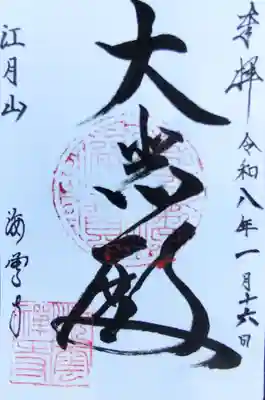 奉拝 令和八年一月十六日
大悲殿
江月山 海雲寺